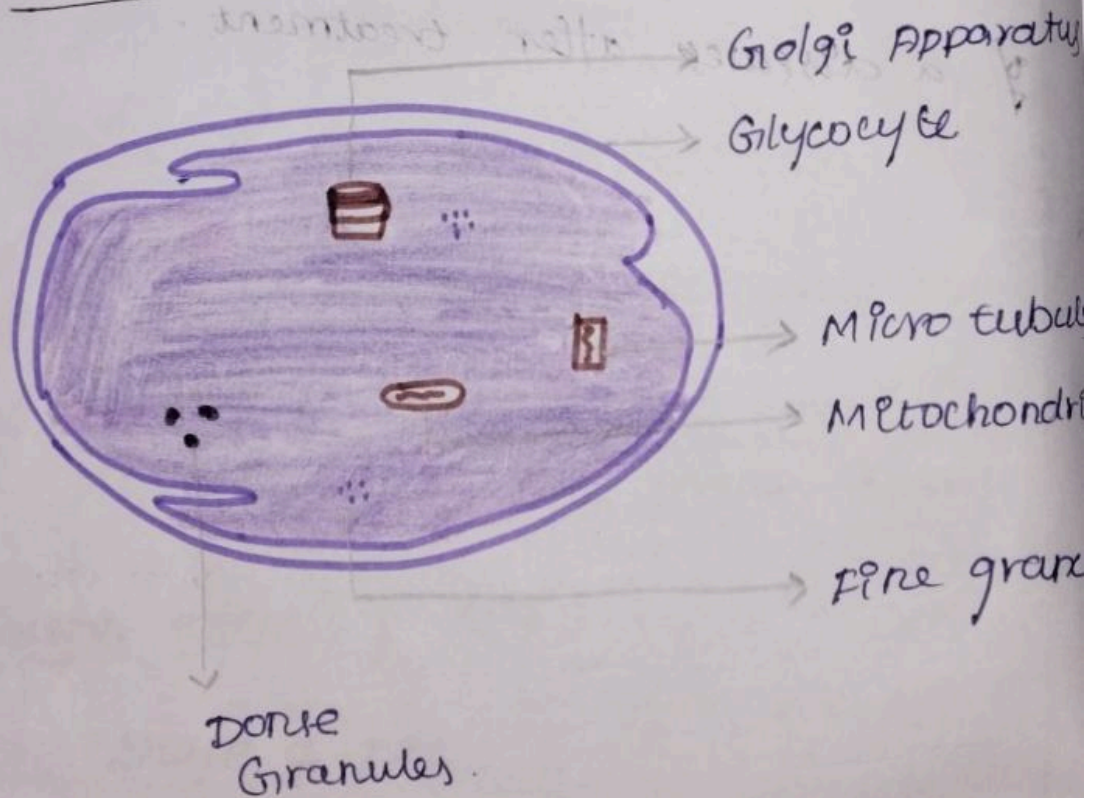 Golgi Apparatus
Glycocyte
Micro tubul
Mitochondri
Fine gran
Dense
Granules.